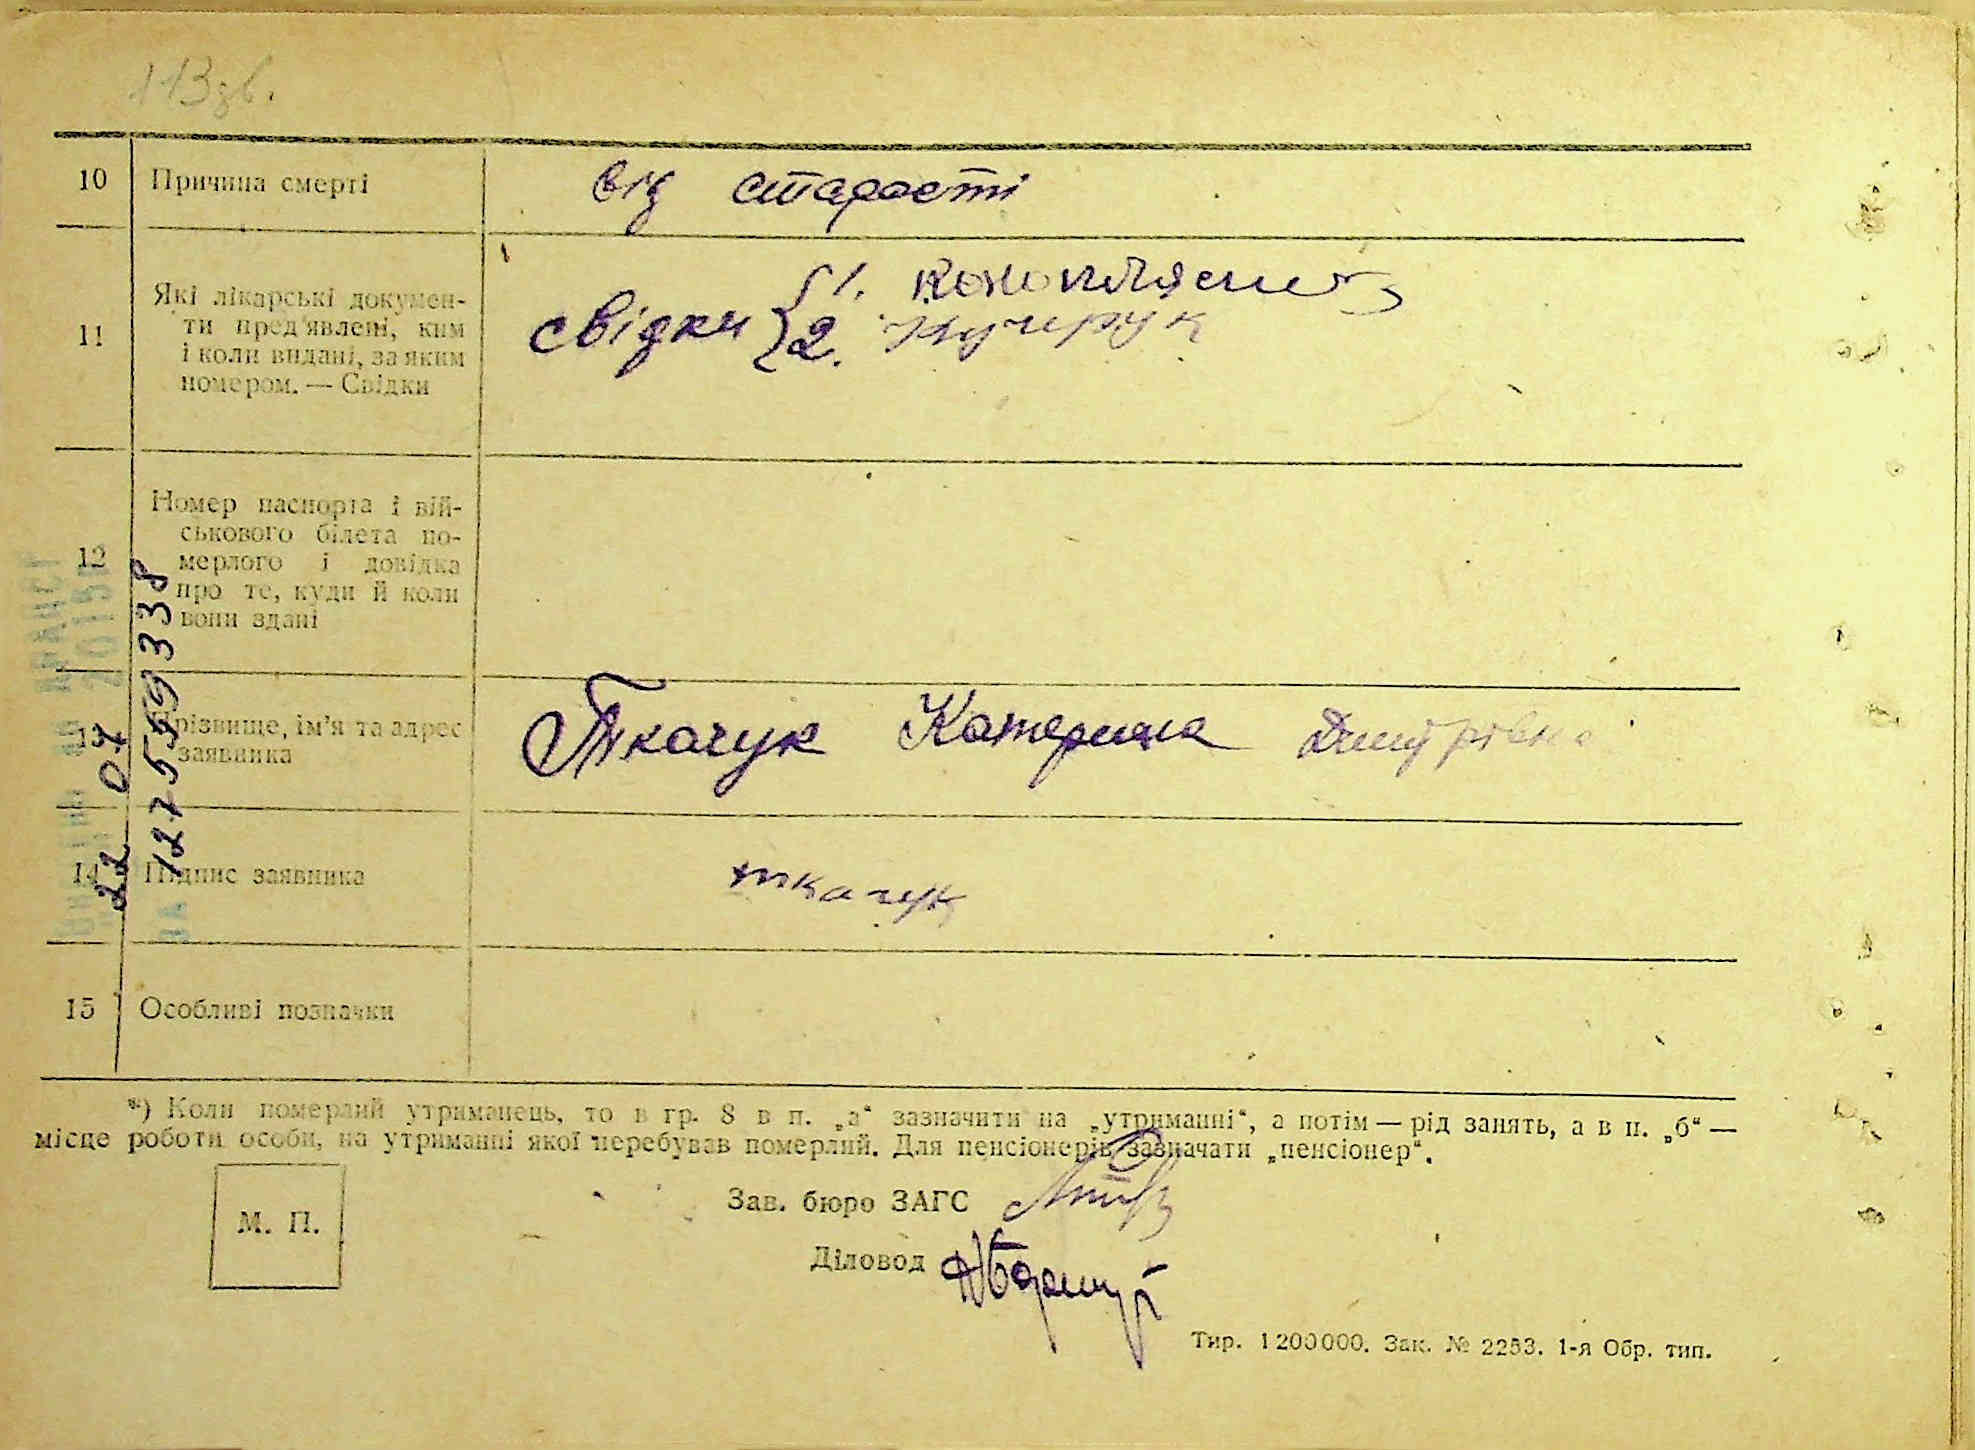 113 зв.
10 Причина смерті від старості
11 Які лікарські докумен-
ти пред'явлені, ким
і коли видані, за яким
номером. — Свідки
свідки { 1.
2. Кучерук
12 Номер паспорта і вій-
ськового білета по-
мерлого і довідка
про те, куди й коли
вони здані
13 Прізвище, ім'я та адрес
заявника
Ткачук Катерина Дмитрівна
14 Підпис заявника ткачук
15 Особливі позначки
22 07
1275599338
*) Коли померлий утриманець, то в гр. 8 в п. „а“ зазначити на „утриманні“, а потім — рід занять, а в п. „б“ —
місце роботи особи, на утриманні якої перебував померлий. Для пенсіонерів зазначати „пенсіонер“.
М. П.
Зав. бюро ЗАГС
Діловод
Тир. 1200000. Зак. № 2253. 1-я Обр. тип.